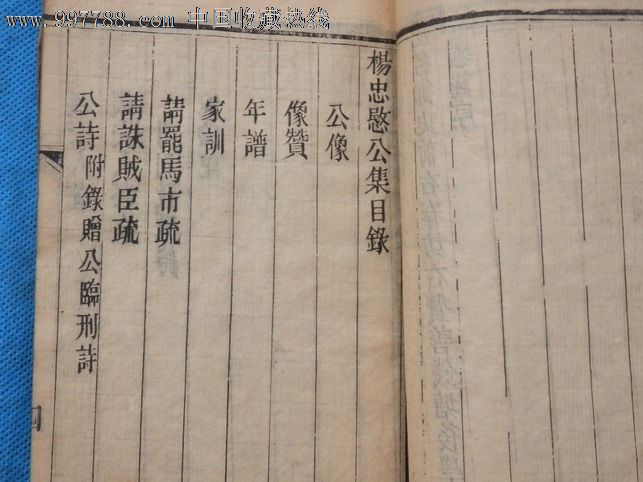 www.997788.com 中国收藏热线
楊忠愍公集目錄
公像
像贊
年譜
家訓
請罷馬市疏
請誅賊臣疏
公詩 附錄贈公臨刑詩